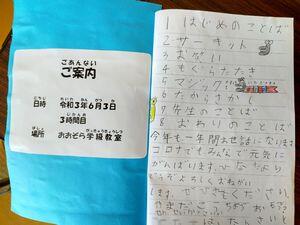 ごあんない
ご案内
にちじ
日時
れいわ ねん がつ か
令和3年6月3日
じかんめ
3時間目
ばしょ
場所
がっきゅうきょうしつ
おおぞら学級教室
1 はじめのことば
2 サーキット
3 おがい
4 もぐらたたき
5 マジック
6 たからさがし
7 先生のことば
8 おわりのことば
今年も一年間お世話になります
コロナでもみんなで元気に
がんばります
どうぞよろしくおねがい
します。